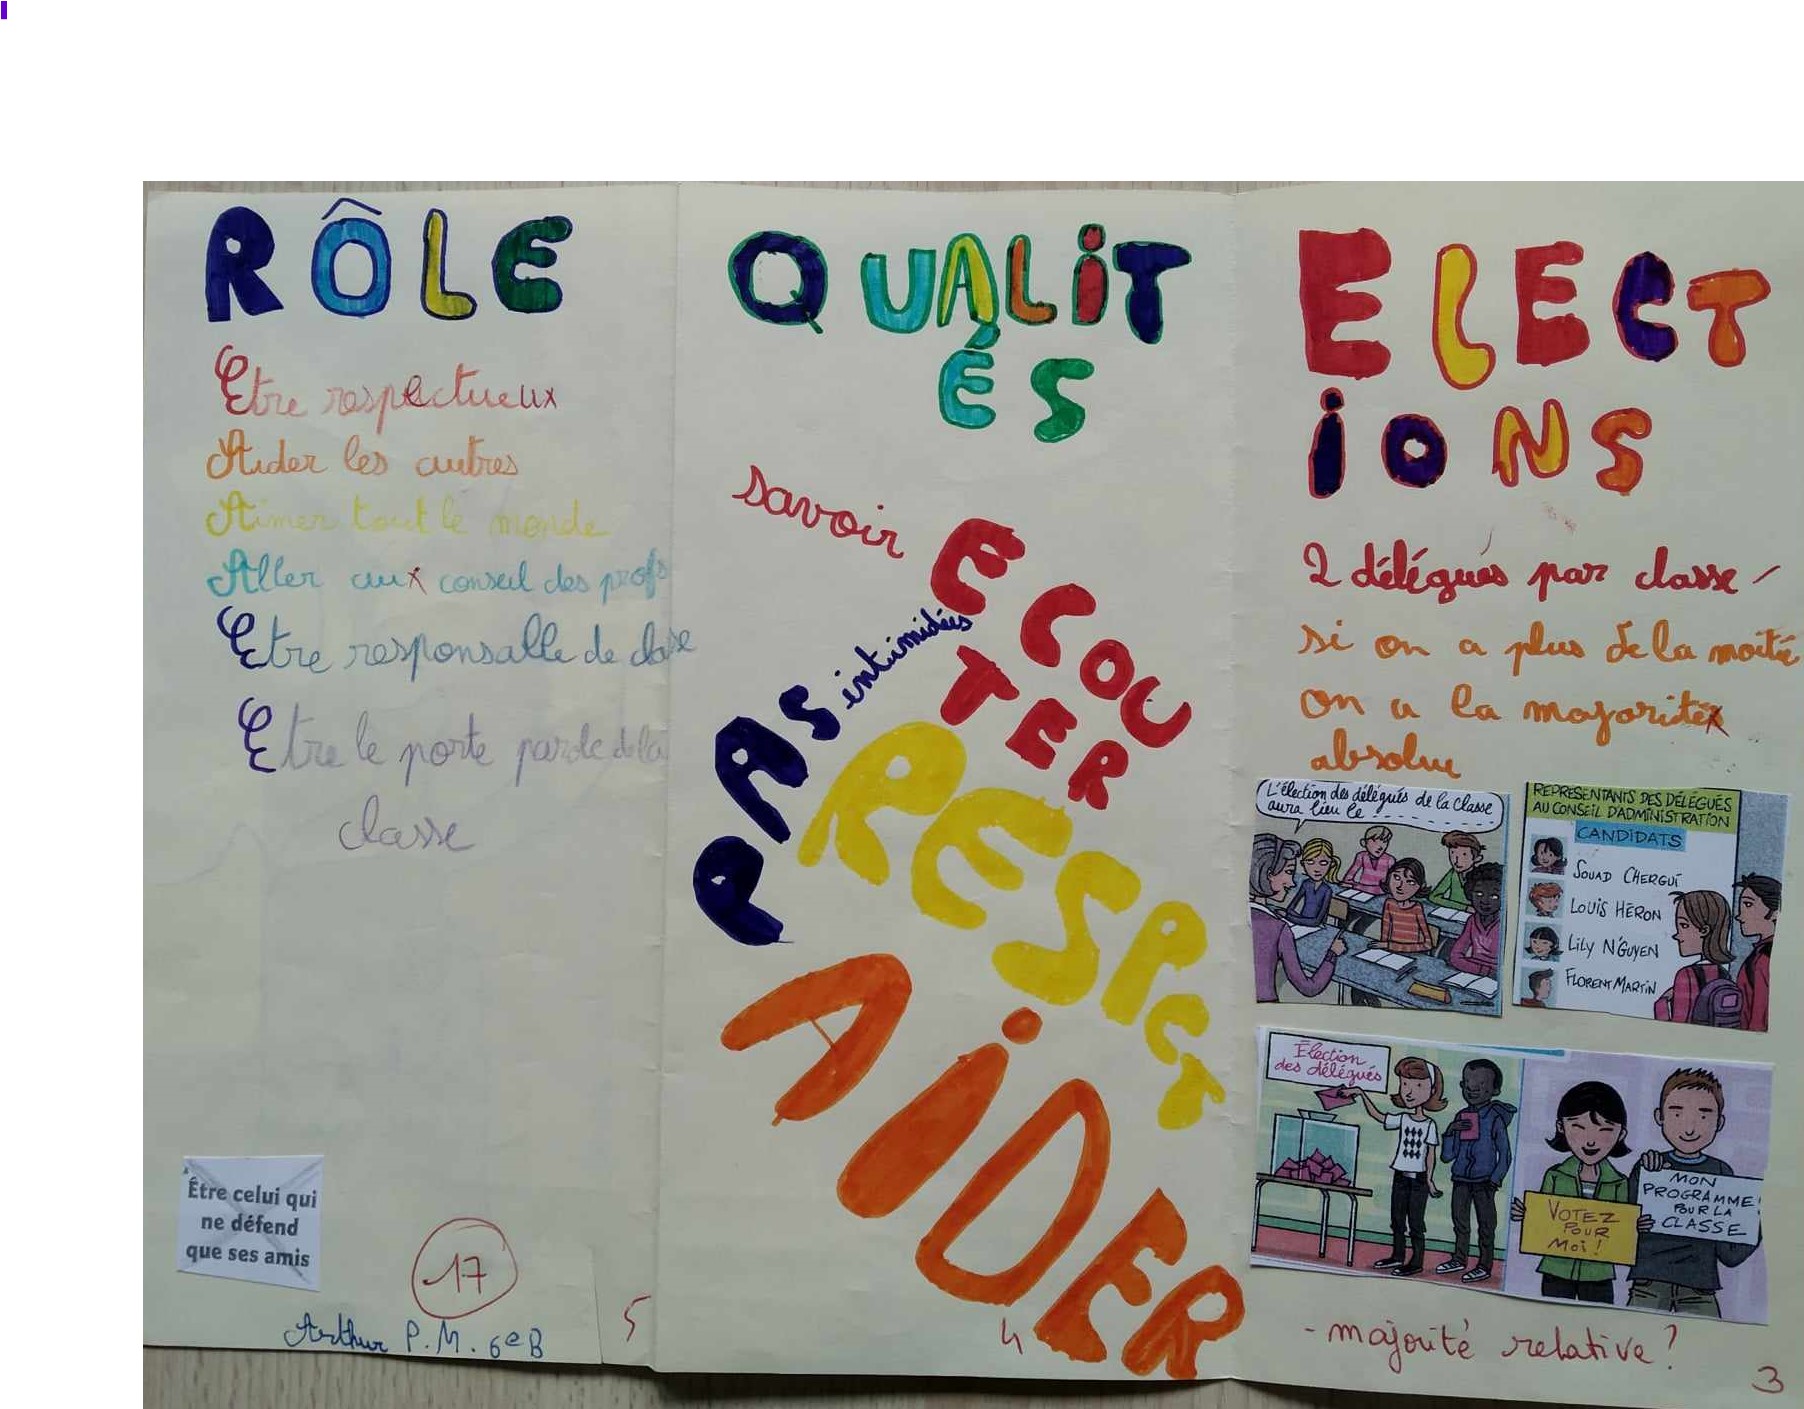 RÔLE
Etre respectueux
Aider les autres
Aimer tout le monde
Aller aux conseil des profs
Etre responsalle de classe
Etre le porte parole de la
classe
Être celui qui
ne défend
que ses amis
17
Arthur P. M. 6e B
5
QUALIT
ÉS
savoir
ECOU
TER
PAS intimidés
RESPECT
AIDER
4
ELECT
iONS
2 délégués par classe
si on a plus de la moitié
on a la majorité
absolue
L'élection des délégués de la classe
aura lieu le
REPRESENTANTS DES DÉLÉGUÉS
AU CONSEIL D'ADMINISTRATION
CANDIDATS
SOUAD CHERGUI
LOUIS HÉRON
LILY N'GUYEN
FLORENT MARTIN
Élection
des délégués
VOTEZ
POUR
MOI !
MON
PROGRAMME
POUR LA
CLASSE
- majorité relative ?
3